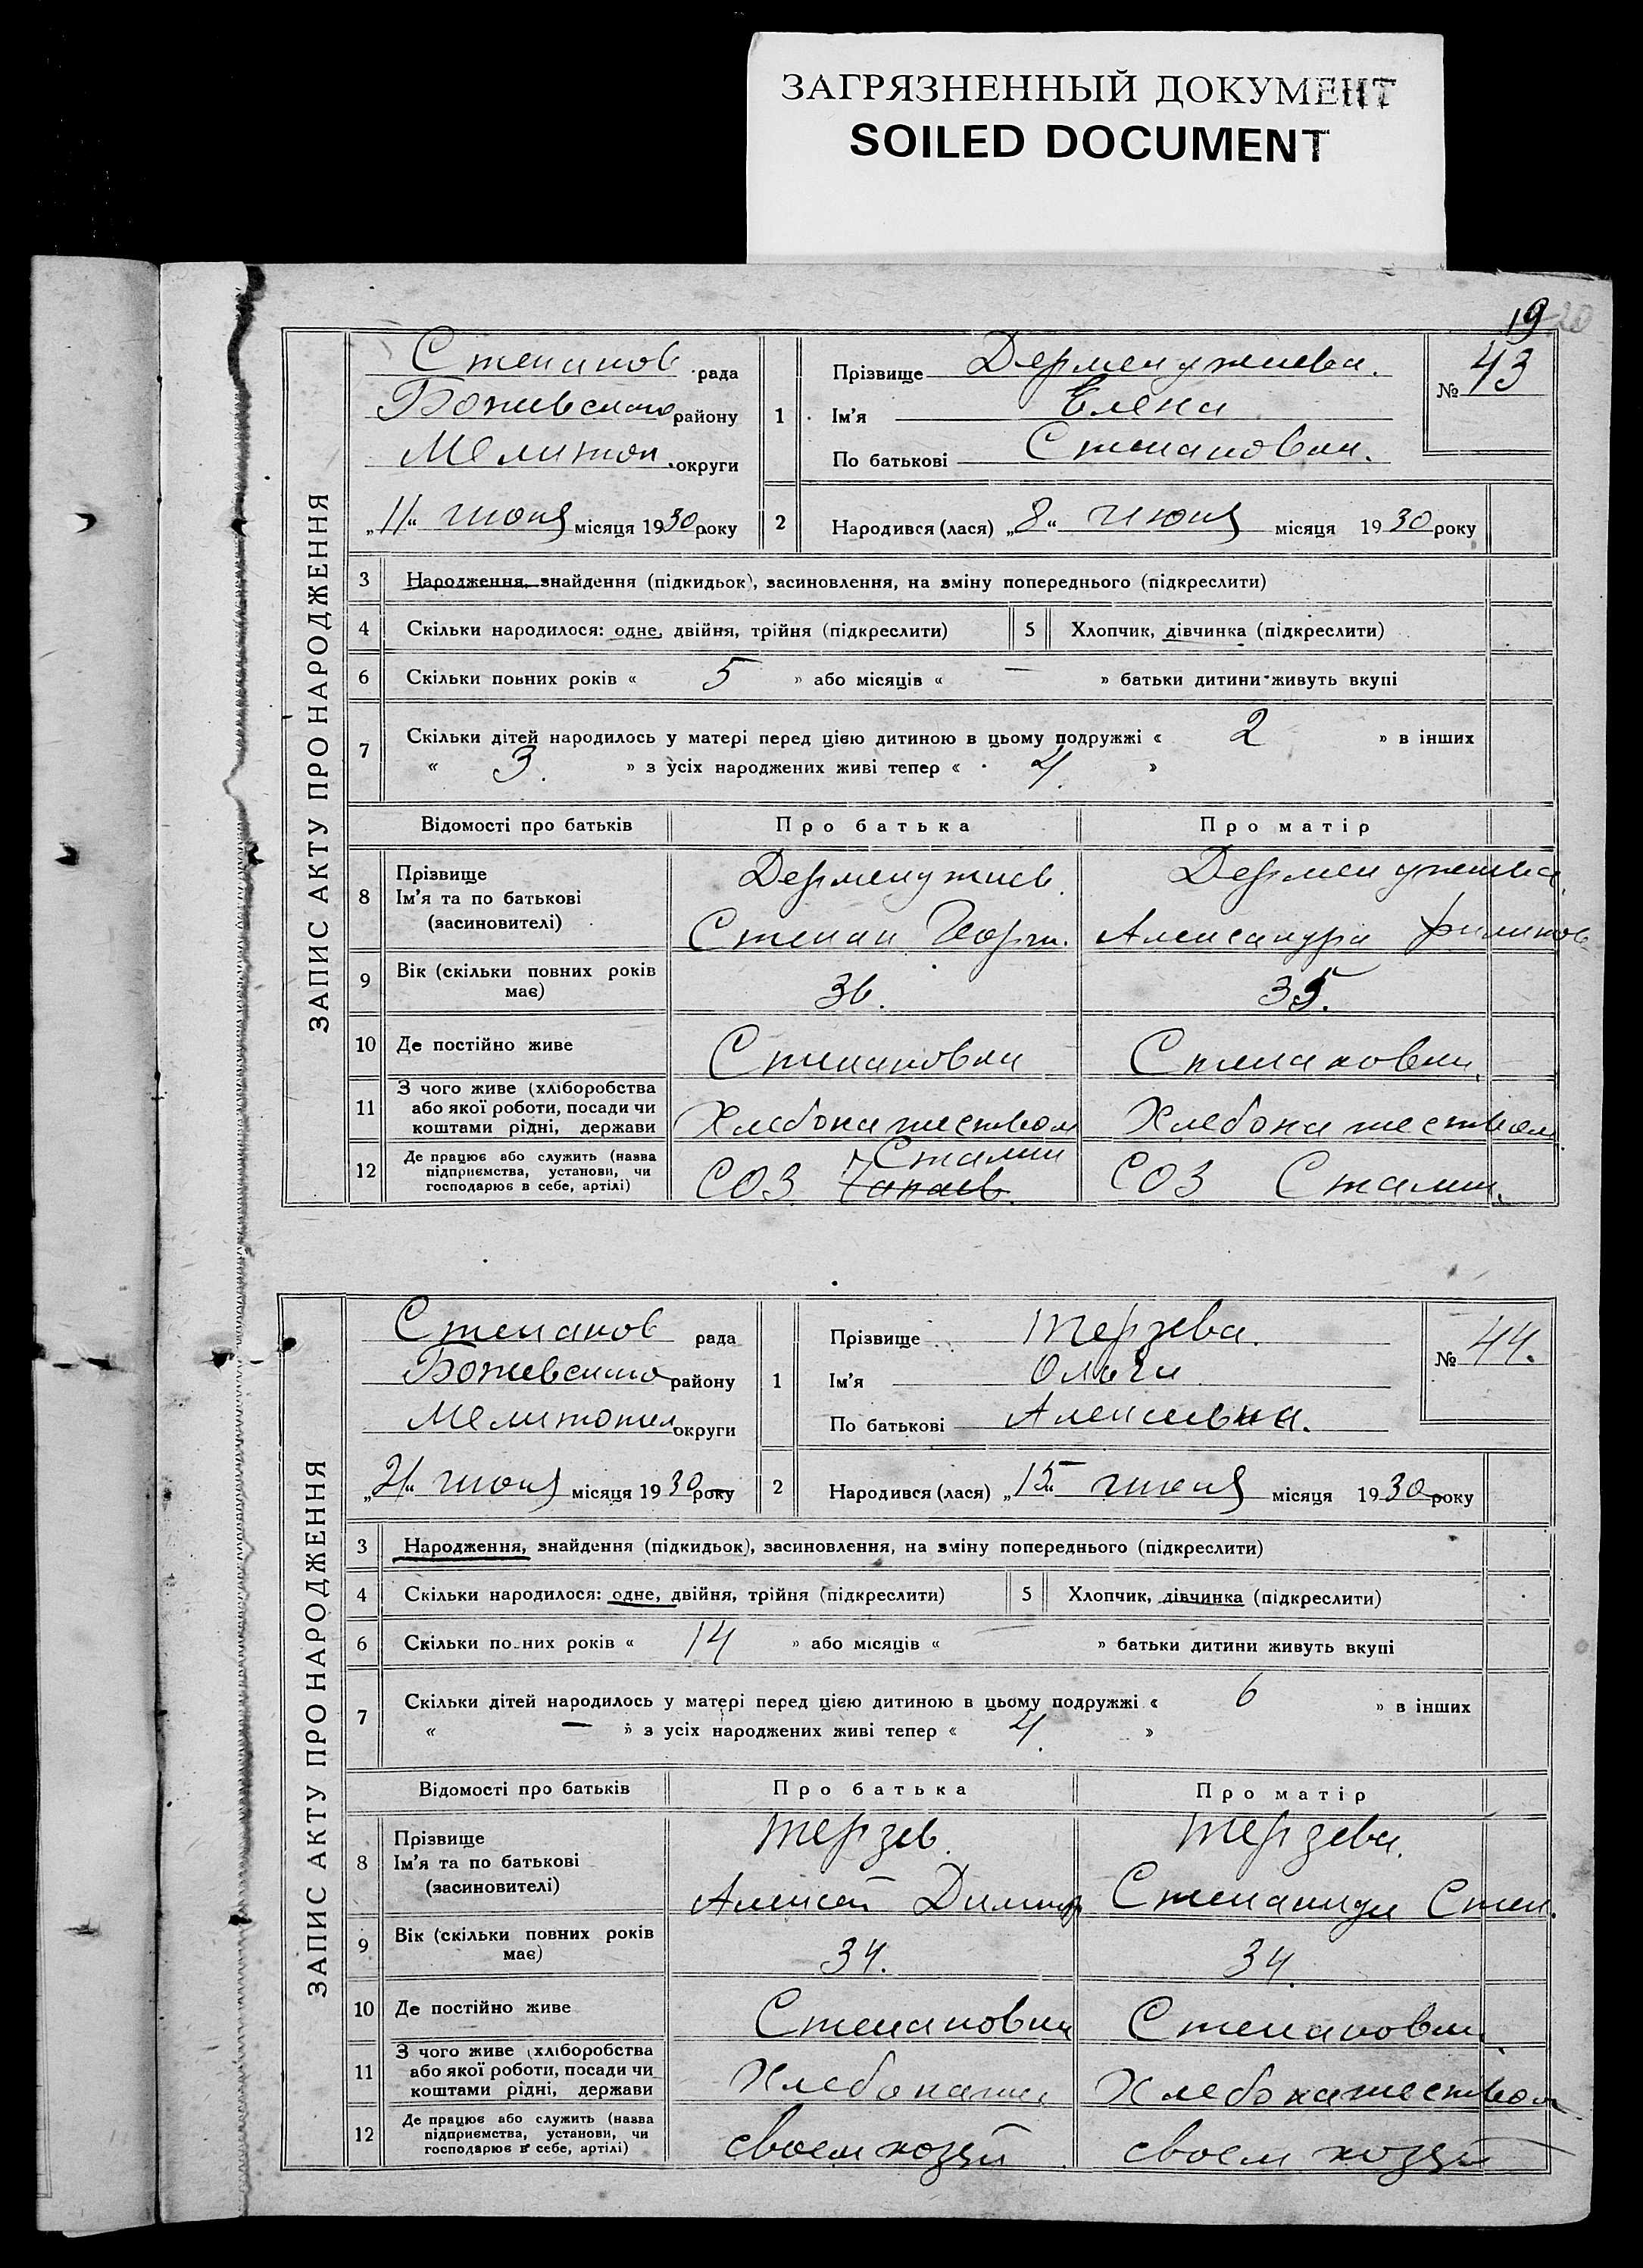 ЗАГРЯЗНЕННЫЙ ДОКУМЕНТ
SOILED DOCUMENT
19 20
ЗАПИС АКТУ ПРО НАРОДЖЕННЯ
Степанов рада
Божевского району
Мелитоп. округи
„11“ июня місяця 1930 року
1
Прізвище Дерменужиева.
Ім'я Елена
По батькові Степановна.
№ 43
2 Народився (лася) „8“ июня місяця 1930 року
3 Народження, знайдення (підкидьок), засиновлення, на зміну попереднього (підкреслити)
4 Скільки народилося: одне, двійня, трійня (підкреслити) 5 Хлопчик, дівчинка (підкреслити)
6 Скільки повних років « 5 » або місяців « — » батьки дитини живуть вкупі
7 Скільки дітей народилось у матері перед цією дитиною в цьому подружжі « 2 » в інших
« 3. » з усіх народжених живі тепер « 4. »
Відомості про батьків Про батька Про матір
8 Прізвище Ім'я та по батькові (засиновителі)
Дерменужиев. Дерменужиева.
Степан Георги. Александра Филипов
9 Вік (скільки повних років має) 36. 35.
10 Де постійно живе Степановка Степановка.
11 З чого живе (хліборобства або якої роботи, посади чи коштами рідні, держави Хлебопашеством Хлебопашеством
12 Де працює або служить (назва підприємства, установи, чи господарює в себе, артілі) СОЗ Чапаев Сталин СОЗ Сталин.
ЗАПИС АКТУ ПРО НАРОДЖЕННЯ
Степанов рада
Божевского району
Мелитопол округи
„21“ июня місяця 1930 року
1
Прізвище Терзева.
Ім'я Ольга
По батькові Алексеевна.
№ 44.
2 Народився (лася) „15“ июня місяця 1930 року
3 Народження, знайдення (підкидьок), засиновлення, на зміну попереднього (підкреслити)
4 Скільки народилося: одне, двійня, трійня (підкреслити) 5 Хлопчик, дівчинка (підкреслити)
6 Скільки повних років « 14 » або місяців « — » батьки дитини живуть вкупі
7 Скільки дітей народилось у матері перед цією дитиною в цьому подружжі « 6 » в інших
« — » з усіх народжених живі тепер « 4. »
Відомості про батьків Про батька Про матір
8 Прізвище Ім'я та по батькові (засиновителі)
Терзев. Терзева.
Алексей Димитр Степанида Степ.
9 Вік (скільки повних років має) 34. 34.
10 Де постійно живе Степановка Степановка
11 З чого живе (хліборобства або якої роботи, посади чи коштами рідні, держави Хлебопаше Хлебопашеством
12 Де працює або служить (назва підприємства, установи, чи господарює в себе, артілі) своем хозяй своем хозяй